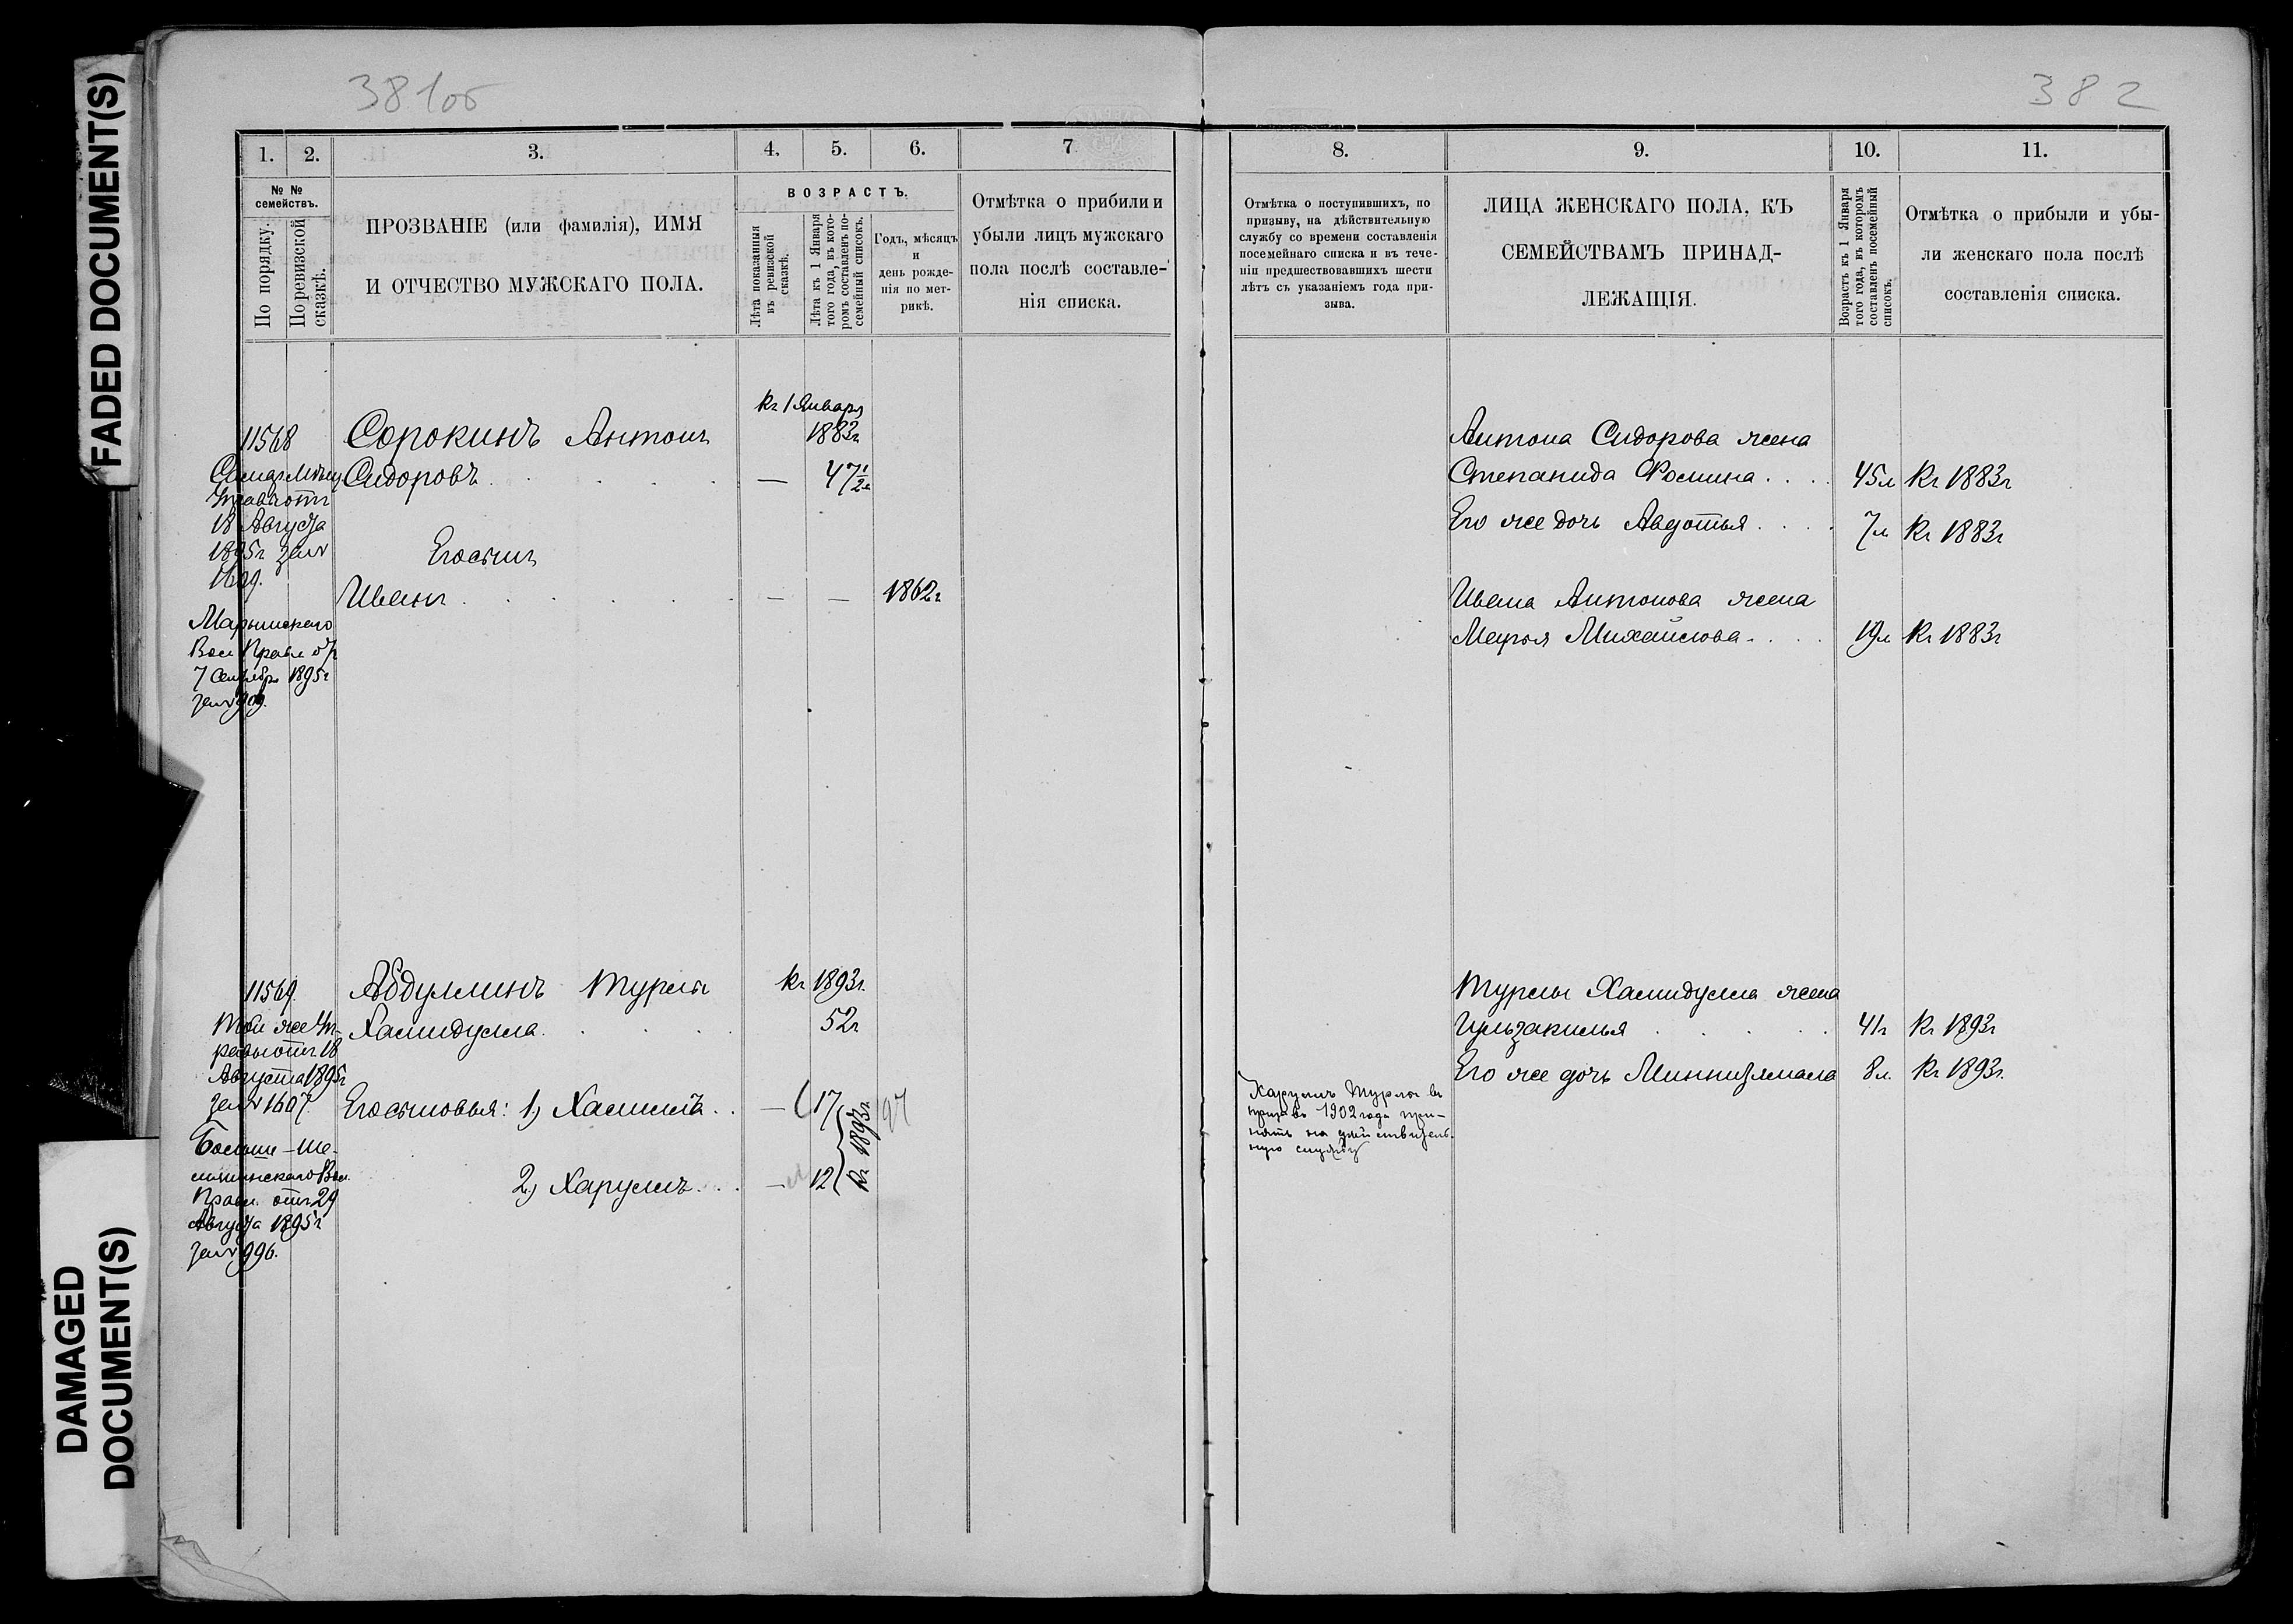 FADED DOCUMENT(S)
DAMAGED
DOCUMENT(S)
381об
1.
2.
3.
4.
5.
6.
7
№ №
семействъ.
По порядку.
По ревизской
сказкѣ.
ПРОЗВАНІЕ (или фамилія), ИМЯ
И ОТЧЕСТВО МУЖСКАГО ПОЛА.
ВОЗРАСТЪ.
Лѣта показанныя
въ ревизской
сказкѣ.
Лѣта къ 1 Января
того года, въ кото-
ромъ составленъ по-
семейный списокъ.
Годъ, мѣсяцъ
и
день рожде-
нія по мет-
рикѣ.
Отмѣтка о прибыли и
убыли лицъ мужскаго
пола послѣ составле-
нія списка.
къ 1 Января
11568
Сорокинъ Антонъ
1883г
Сидоровъ
— 47½
18 Августа
1895г за №
1609.
Его сынъ
Иванъ
— — 1862г
Вол Правл
7 Сентябр 1895г
за № 909.
11569.
Абдуллинъ Турлы
къ 1893г.
Той же Уп-
равы отъ 18
Августа 1895г
за № 1607.
Хамидулла
52г
Его сыновья: 1) Хасимъ
— 17
97
къ 1893г.
2) Харулъ
— 12
Правл. отъ 29
Августа 1895г
за № 996.
382
8.
9.
10.
11.
Отмѣтка о поступившихъ, по
призыву, на дѣйствительную
службу со времени составленія
посемейнаго списка и въ тече-
ніи предшествовавшихъ шести
лѣтъ съ указаніемъ года при-
зыва.
ЛИЦА ЖЕНСКАГО ПОЛА, КЪ
СЕМЕЙСТВАМЪ ПРИНАД-
ЛЕЖАЩІЯ.
Возрастъ къ 1 Января
того года, въ которомъ
составленъ посемейный
списокъ.
Отмѣтка о прибыли и убы-
ли женскаго пола послѣ
составленія списка.
Антона Сидорова жена
Степанида Фомина 45л къ 1883г
Его же дочь Авдотья 7л къ 1883г
Ивана Антонова жена
Марья Михайлова 19л къ 1883г
Турлы Хамидулла жена
Гульзакилья 41г къ 1893г
Его же дочь 8л. къ 1893г.
Харулъ Турлы въ
призывъ 1902 года при-
нятъ на действитель-
ную службу